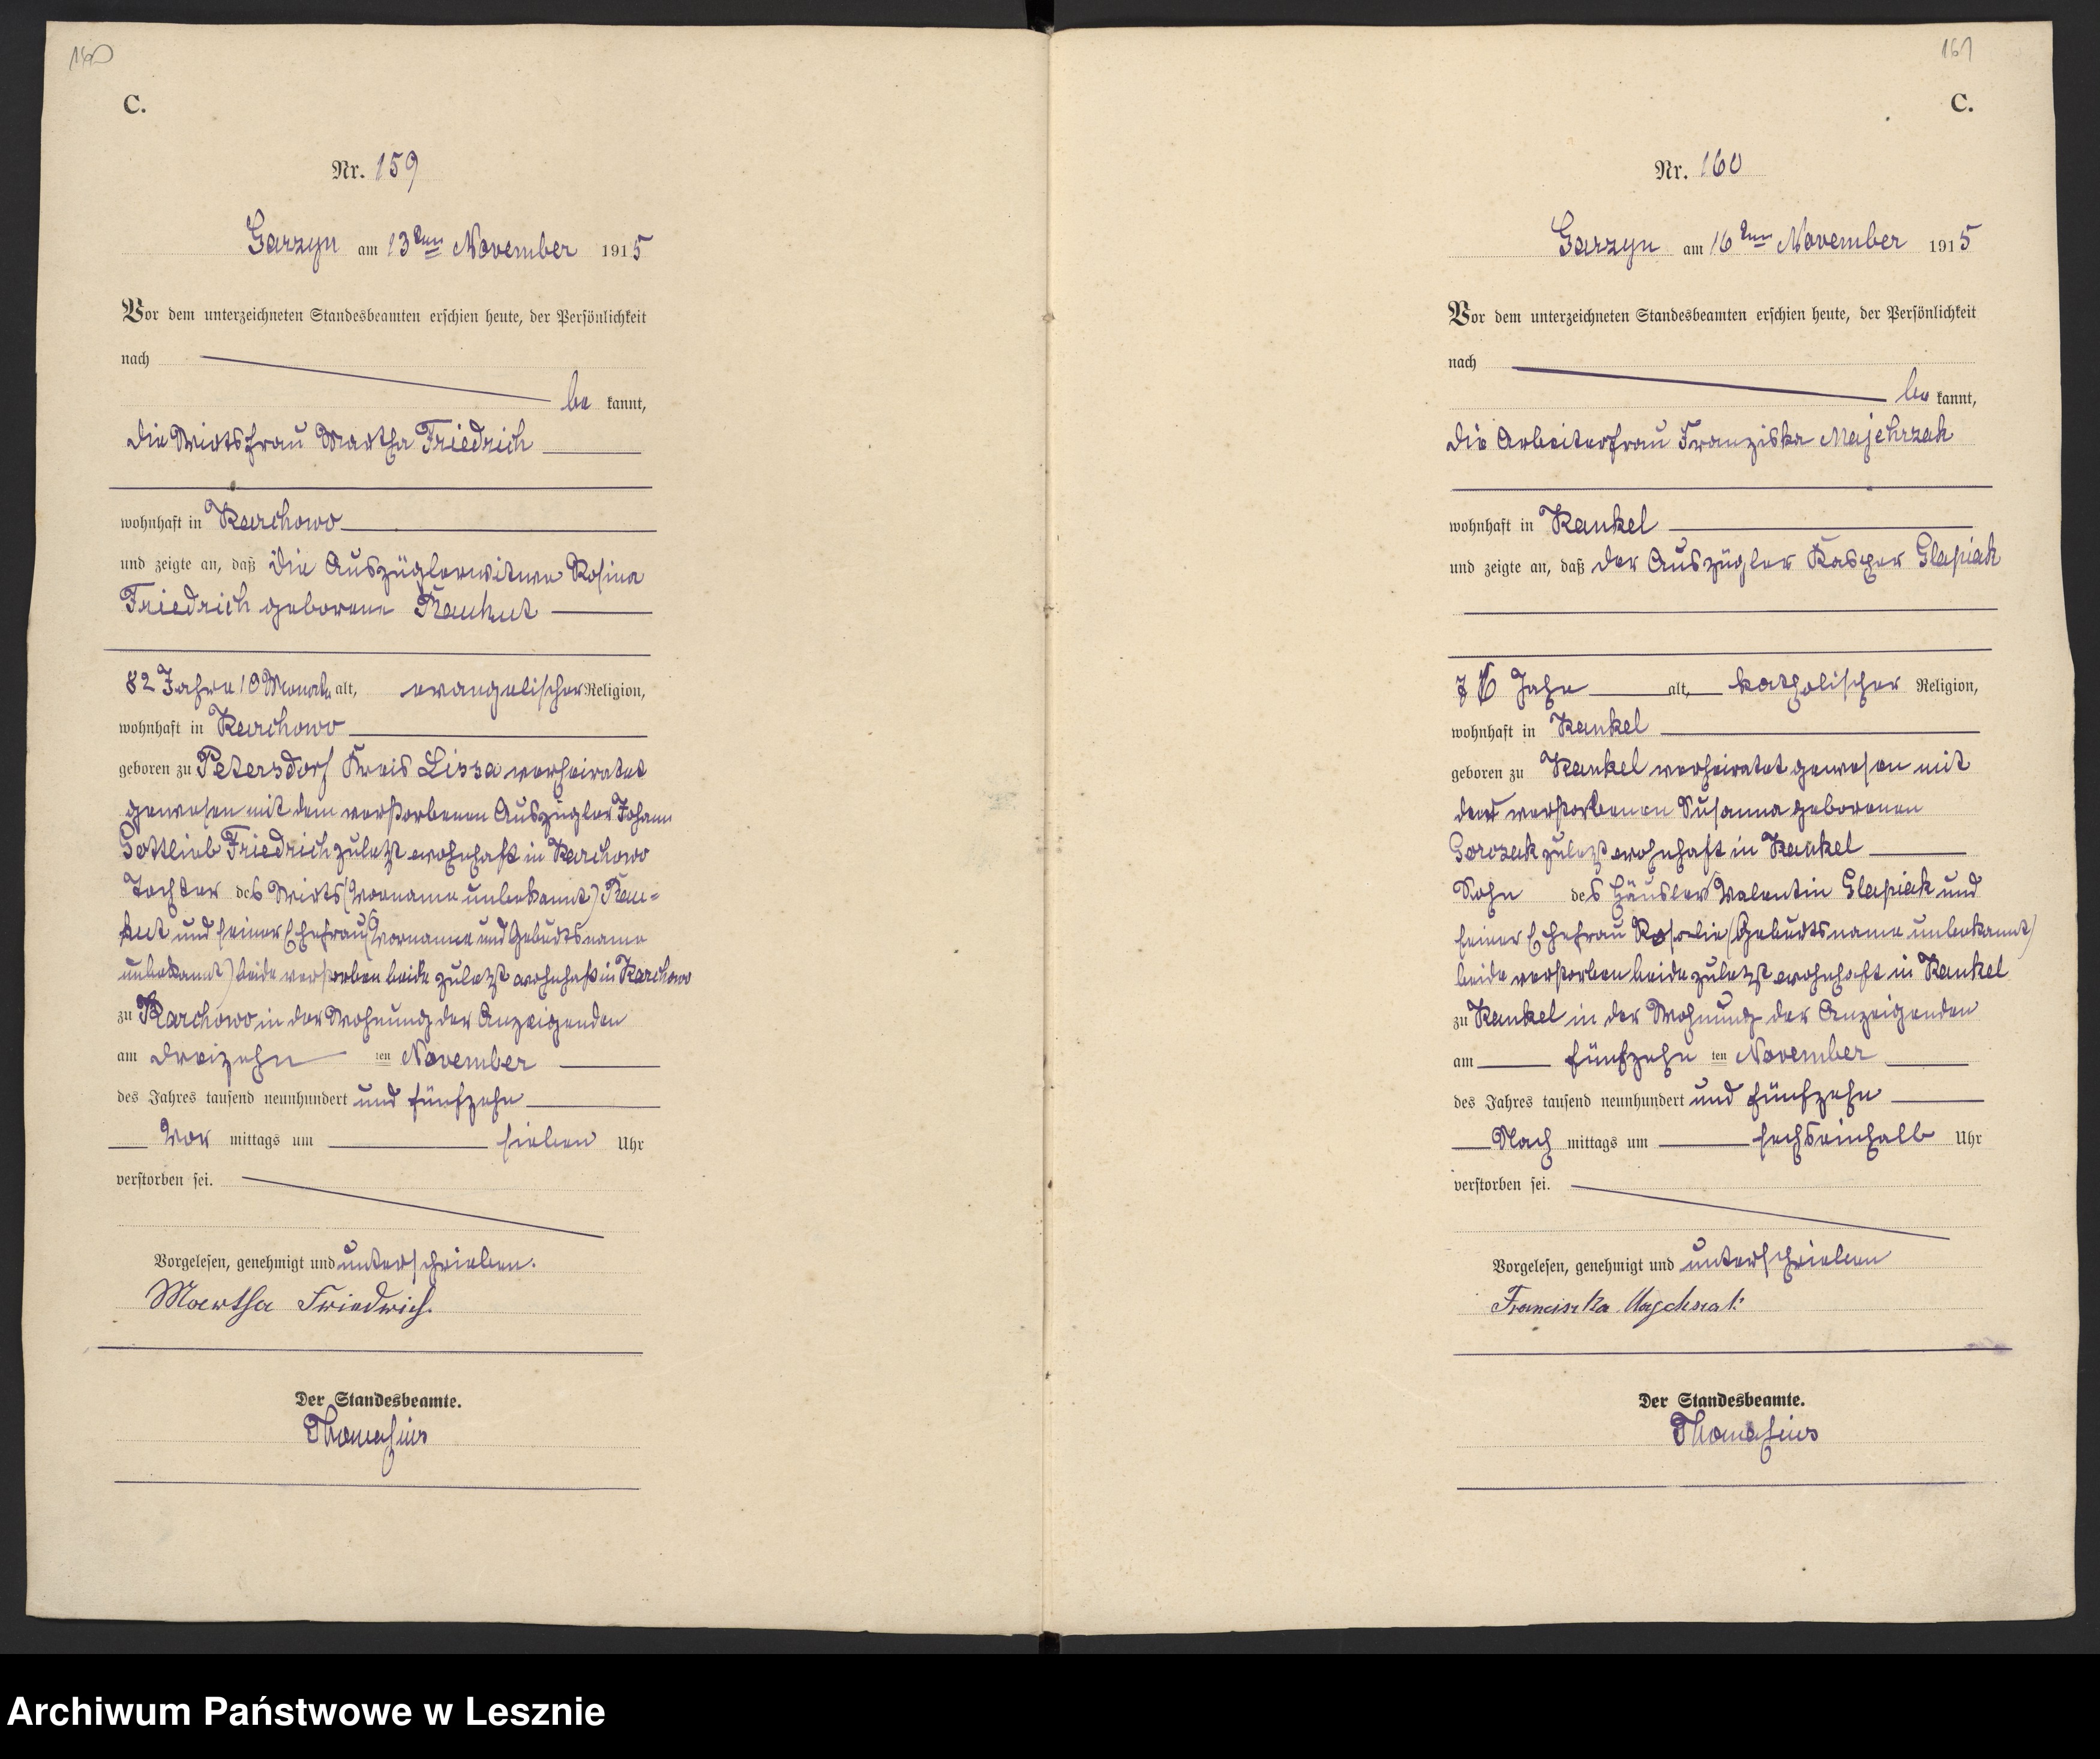 160
C.
Nr. 159
Garzyn am 13ten November 1915
Vor dem unterzeichneten Standesbeamten erschien heute, der Persönlichkeit
nach
be kannt,
die Wirtsfrau Martha Friedrich
wohnhaft in Karchowo
und zeigte an, daß die Auszüglerwitwe Rosina
Friedrich geborene Rauhut
82 Jahre 10 Monate alt, evangelischer Religion,
wohnhaft in Karchowo
geboren zu Petersdorf Kreis Lissa verheiratet
gewesen mit dem verstorbenen Auszügler Johann
Gottlieb Friedrich zuletzt wohnhaft in Karchowo
Tochter des Wirts (Vorname unbekannt) Rau-
hut und seiner Ehefrau (Vorname und Geburtsname
unbekannt) beide verstorben beide zuletzt wohnhaft in Karchowo
zu Karchowo in der Wohnung der Anzeigenden
am dreizehn ten November
des Jahres tausend neunhundert und fünfzehn
Vor mittags um sieben Uhr
verstorben sei.
Vorgelesen, genehmigt und unterschrieben.
Martha Friedrich.
Der Standesbeamte.
Thomasius
161
C.
Nr. 160
Garzyn am 16ten November 1915
Vor dem unterzeichneten Standesbeamten erschien heute, der Persönlichkeit
nach
be kannt,
die Arbeiterfrau Franziska Majchrzak
wohnhaft in Kankel
und zeigte an, daß der Auszügler Kasper Glapiak
76 Jahr alt, katholischer Religion,
wohnhaft in Kankel
geboren zu Kankel verheiratet gewesen mit
der verstorbenen Susanna geborenen
zuletzt wohnhaft in Kankel
Sohn des Häusler Valentin Glapiak und
seiner Ehefrau Rosalie (Geburtsname unbekannt)
beide verstorben beide zuletzt wohnhaft in Kankel
zu Kankel in der Wohnung der Anzeigenden
am fünfzehn ten November
des Jahres tausend neunhundert und fünfzehn
Nach mittags um sechseinhalb Uhr
verstorben sei.
Vorgelesen, genehmigt und unterschrieben
Franciszka
Der Standesbeamte.
Thomasius
Archiwum Państwowe w Lesznie